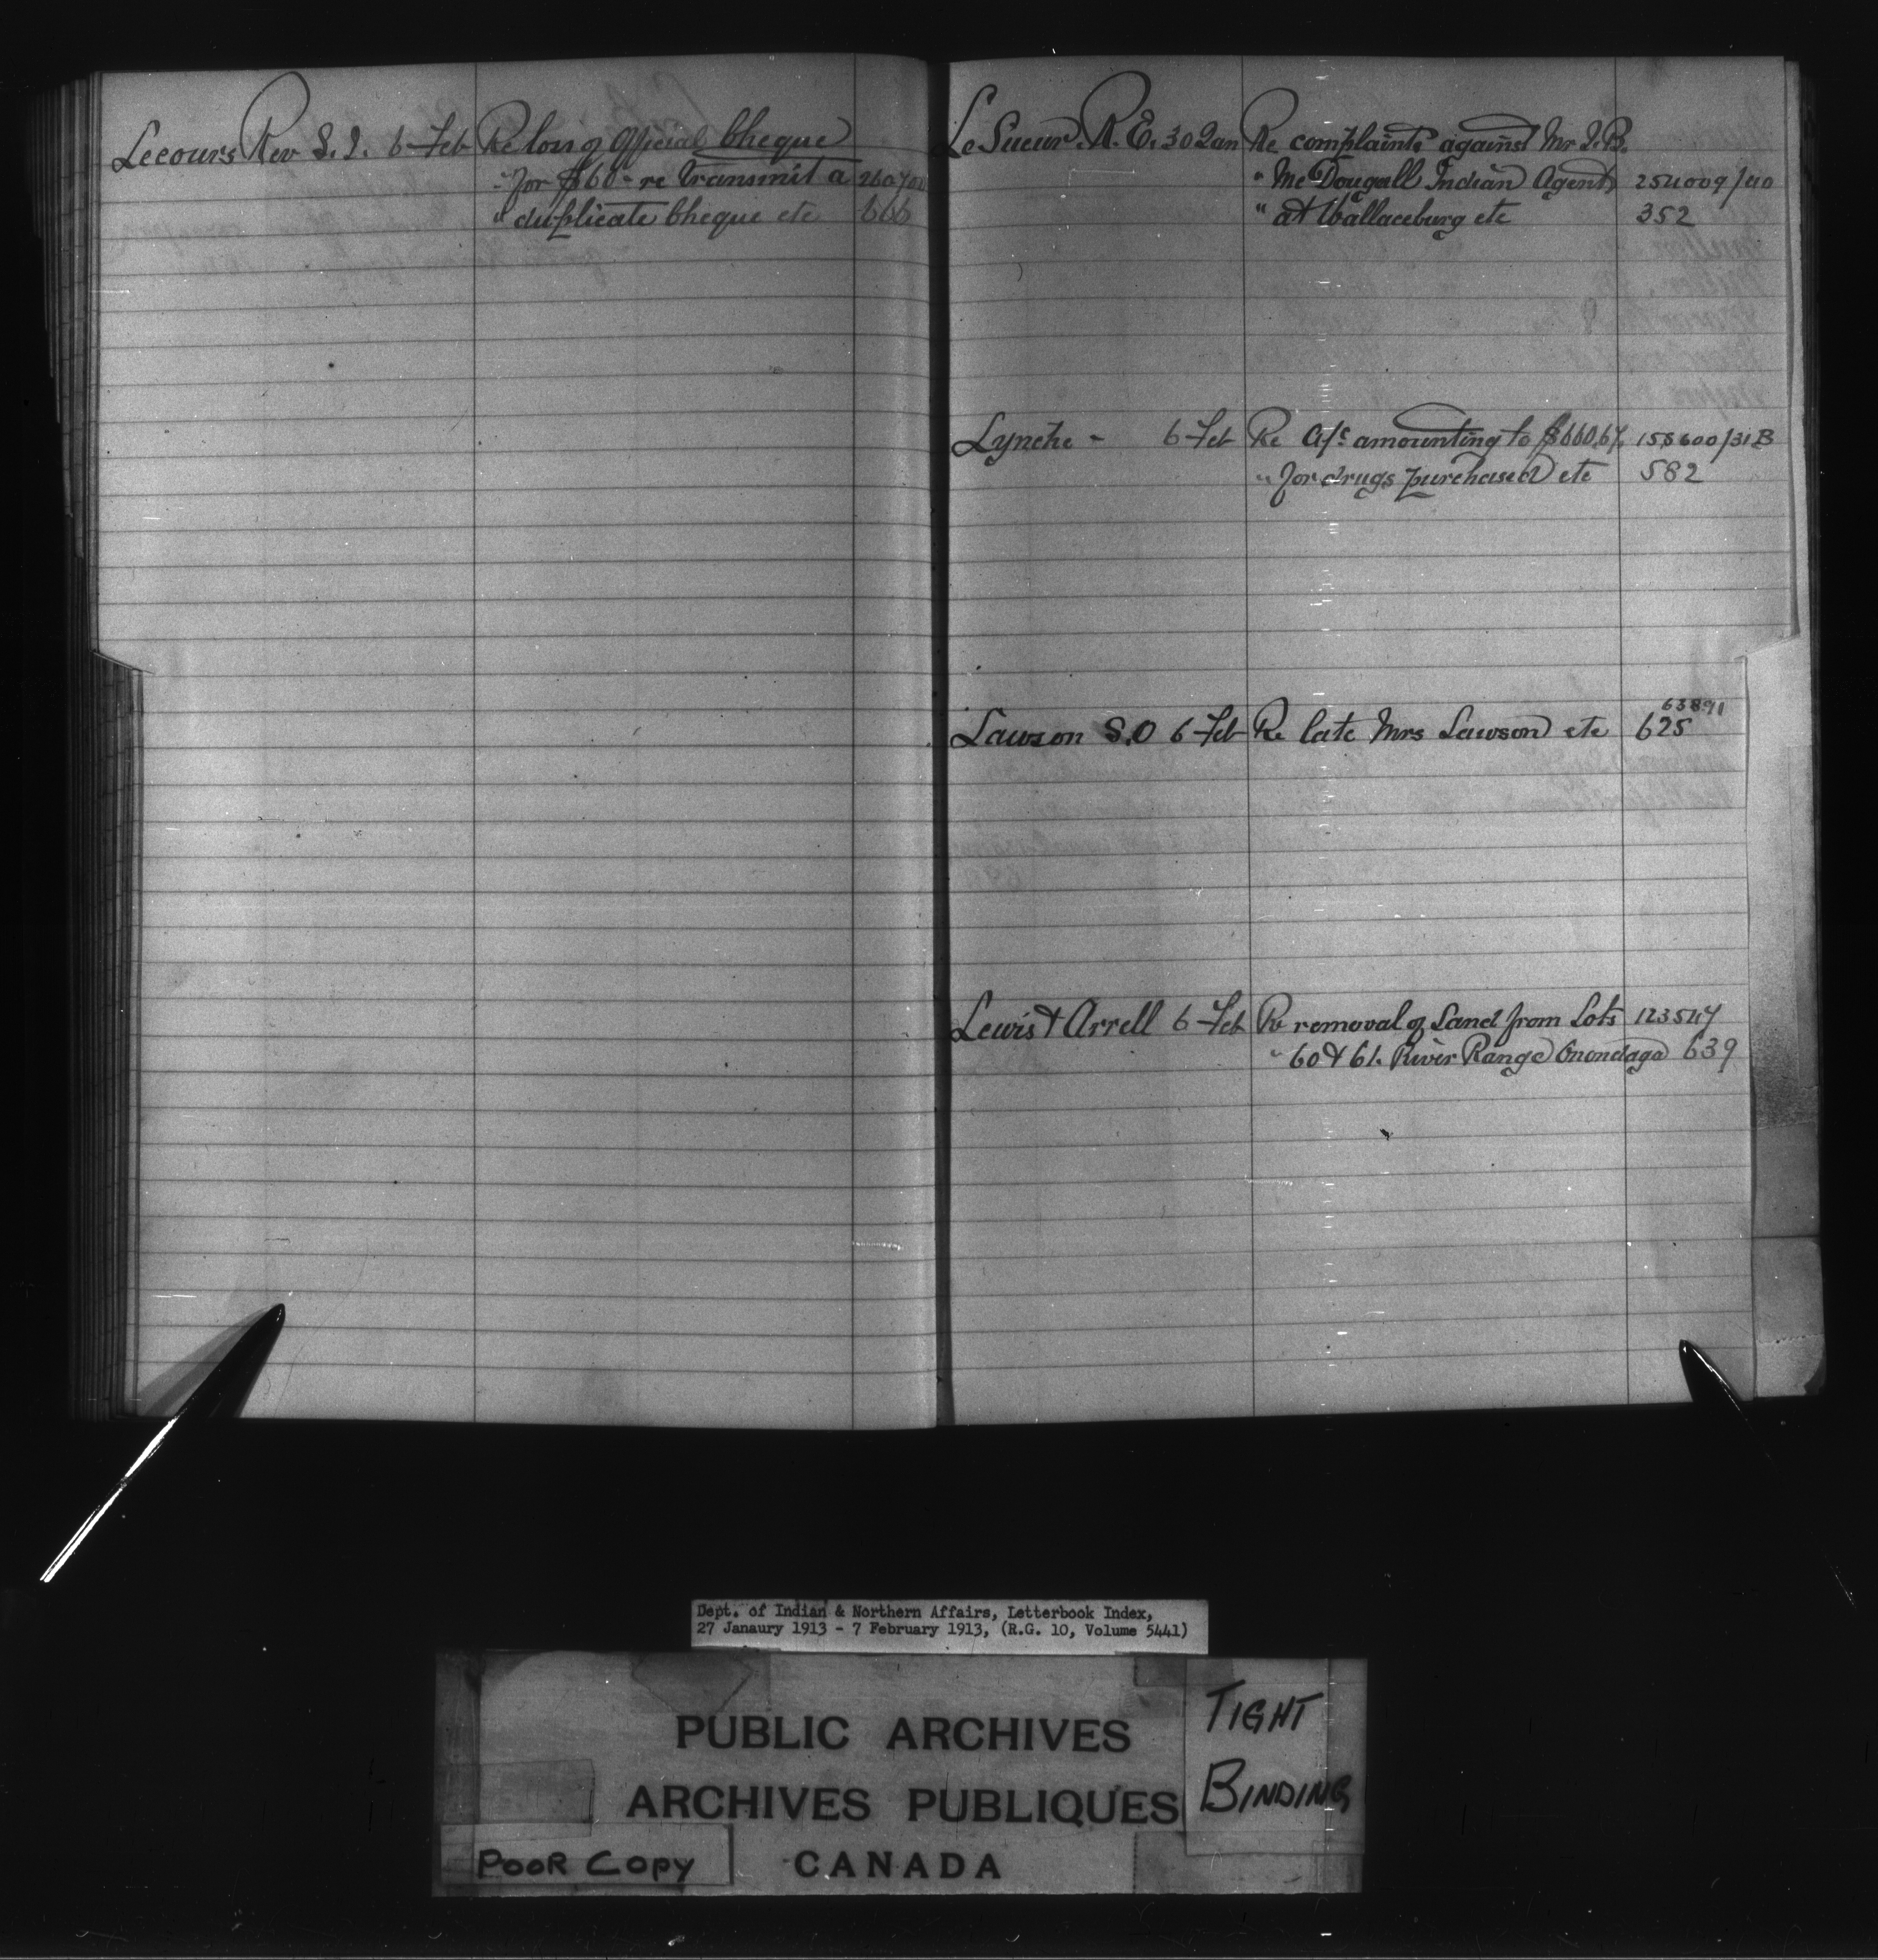 Lecours Rev S. J. 6 Feb Re loss of Official Cheque
" for $60 - re transmit a 260700
" duplicate Cheque etc 666
Le Sueur. R. E. 30 Jan Re complaints against Mr J. B.
" McDougall Indian Agent 254009/40
" at Wallaceburg etc 352
Lynche - 6 Feb Re a/c amounting to $660.67 158600/31B
" for drugs purchased etc 582
Lawson S. O 6 Feb Re late Mrs Lawson etc 63891
625
Lewis & Arrell 6 Feb Re removal of Sand from Lots 123547
" 60 & 61. River Range Onondaga 639
Dept. of Indian & Northern Affairs, Letterbook Index,
27 Janaury 1913 - 7 February 1913, (R.G. 10, Volume 5441)
PUBLIC ARCHIVES
ARCHIVES PUBLIQUES
CANADA
TIGHT
BINDING
POOR COPY